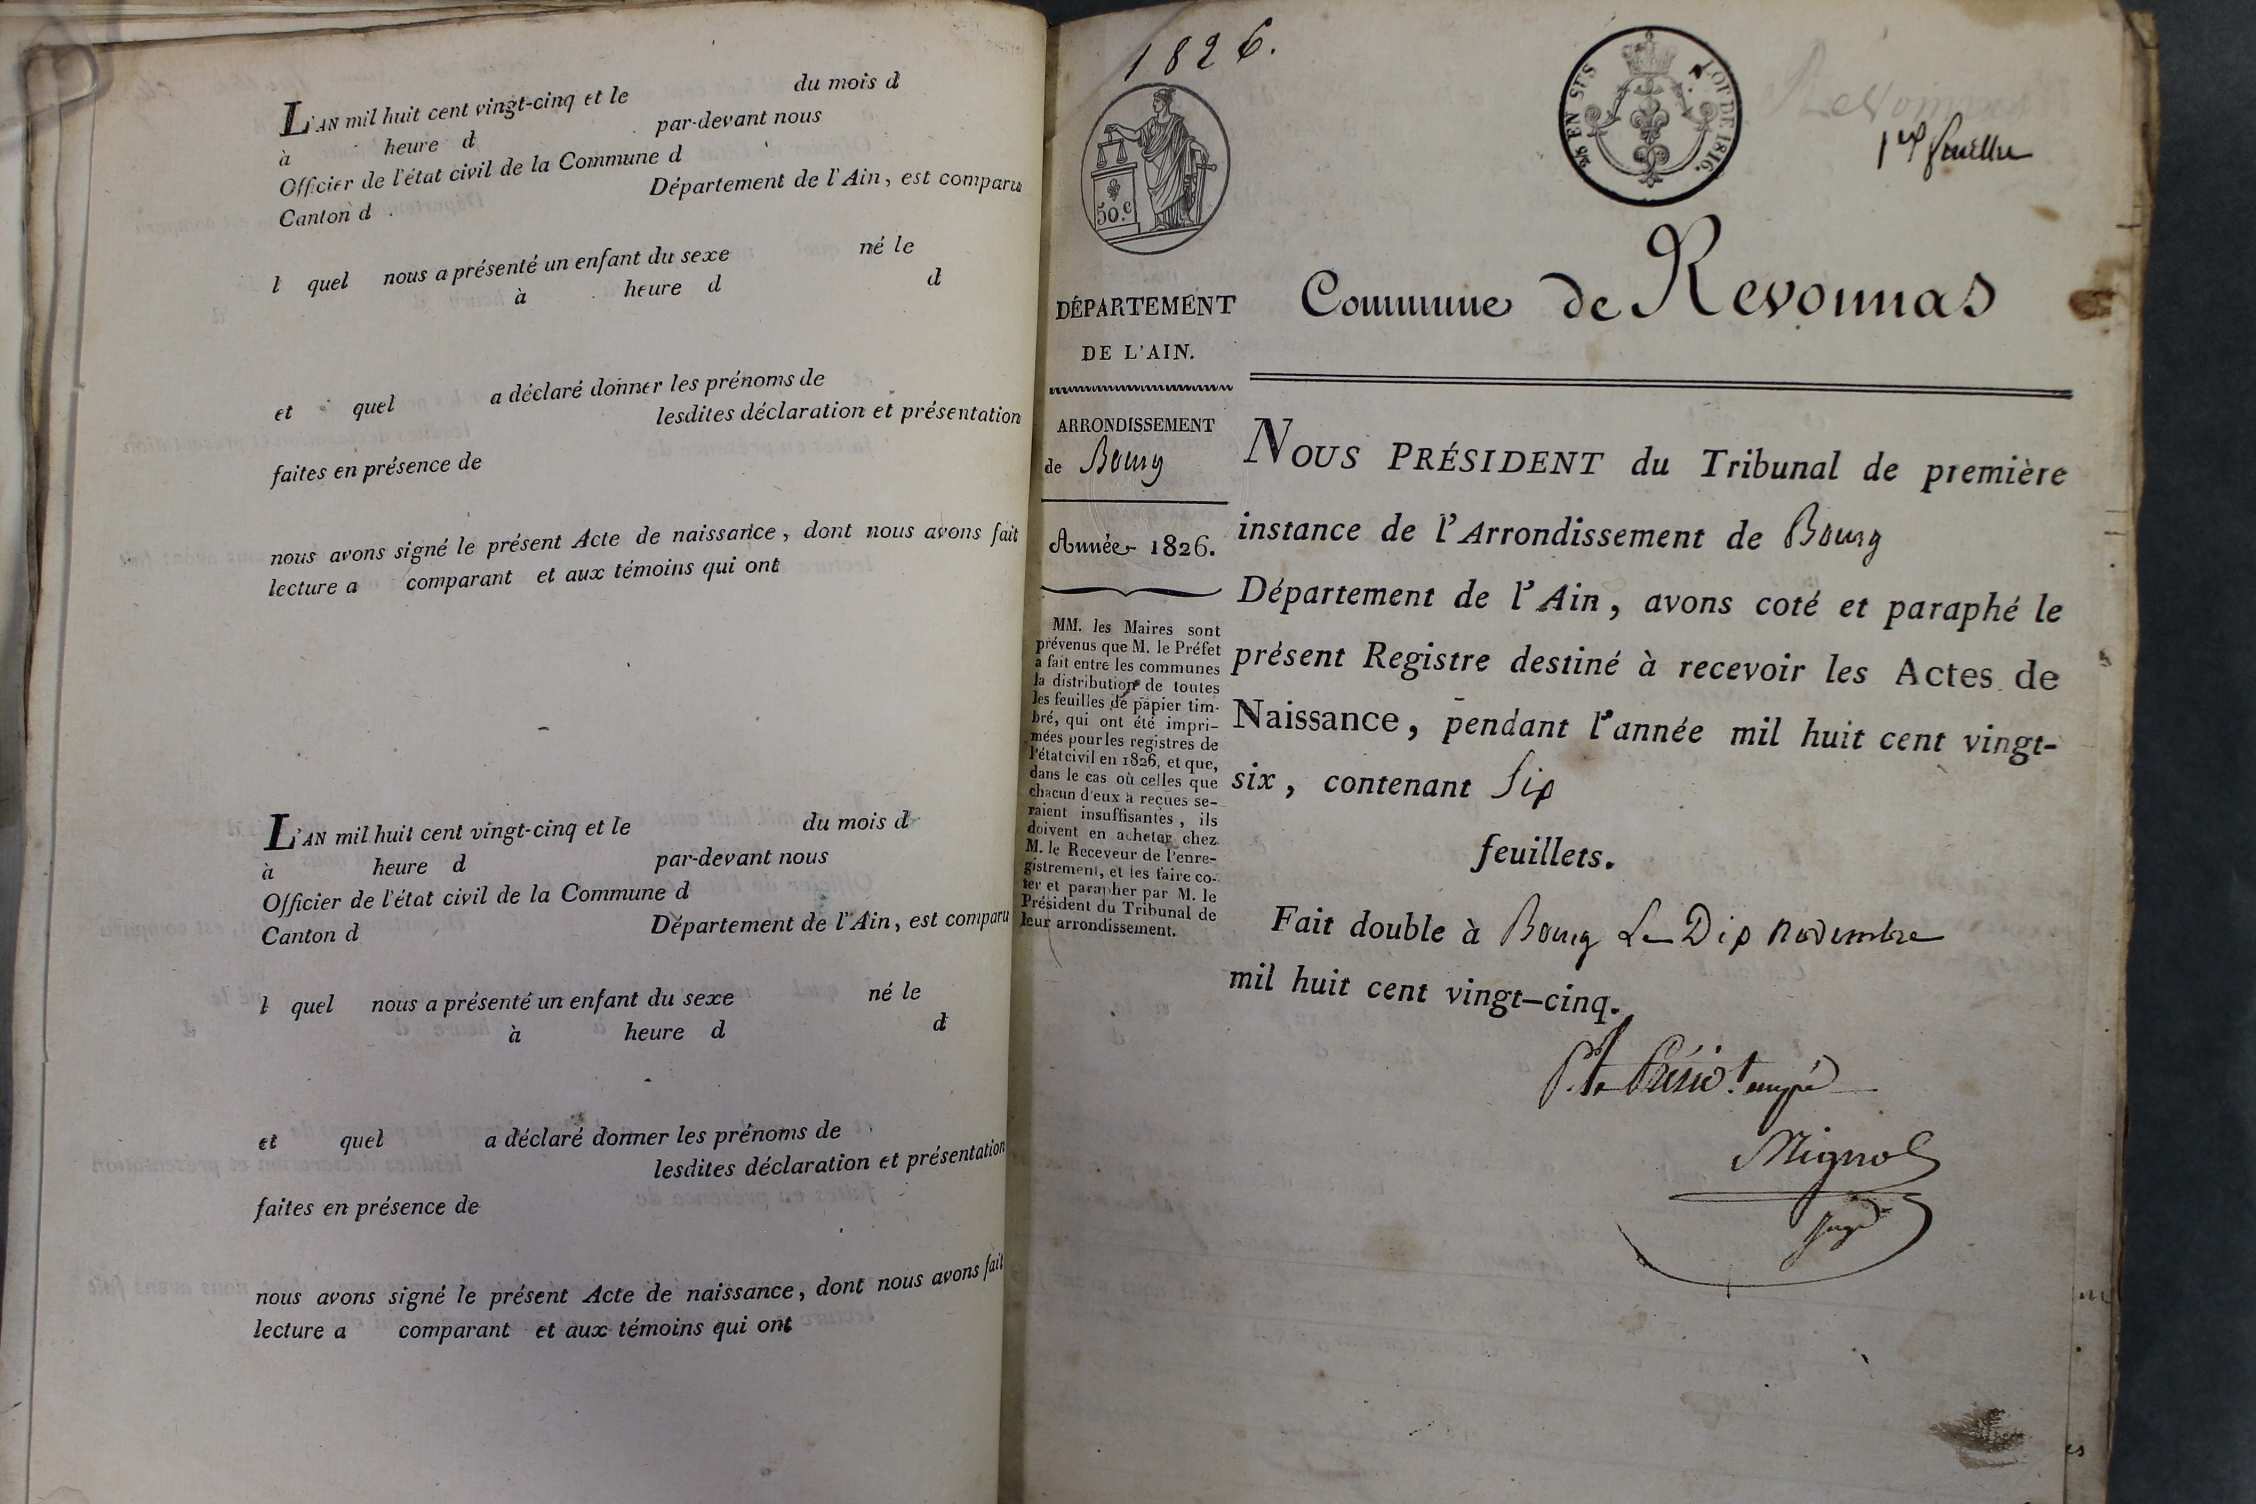 L'AN mil huit cent vingt-cinq et le du mois d
à heure d par-devant nous
Officier de l'état civil de la Commune d
Canton d Département de l'Ain, est comparu
l quel nous a présenté un enfant du sexe né le
à heure d d
et quel a déclaré donner les prénoms de
lesdites déclaration et présentation
faites en présence de
nous avons signé le présent Acte de naissance, dont nous avons fait
lecture a comparant et aux témoins qui ont
L'AN mil huit cent vingt-cinq et le du mois d
à heure d par-devant nous
Officier de l'état civil de la Commune d
Canton d Département de l'Ain, est comparu
l quel nous a présenté un enfant du sexe né le
à heure d d
et quel a déclaré donner les prénoms de
lesdites déclaration et présentation
faites en présence de
nous avons signé le présent Acte de naissance, dont nous avons fait
lecture a comparant et aux témoins qui ont
1826.
50.c
EN SUS
LOI DE 1816.
Revonnas
1er feuillet
DÉPARTEMENT
DE L'AIN.
ARRONDISSEMENT
de Bourg
Année 1826.
MM. les Maires sont
prévenus que M. le Préfet
a fait entre les communes
la distribution de toutes
les feuilles de papier tim-
bré, qui ont été impri-
mées pour les registres de
l'état civil en 1826, et que,
dans le cas où celles que
chacun d'eux a reçues se-
raient insuffisantes, ils
doivent en acheter chez
M. le Receveur de l'enre-
gistrement, et les faire co-
ter et parapher par M. le
Président du Tribunal de
leur arrondissement.
Commune de Revonnas
NOUS PRÉSIDENT du Tribunal de première
instance de l'Arrondissement de Bourg
Département de l'Ain, avons coté et paraphé le
présent Registre destiné à recevoir les Actes de
Naissance, pendant l'année mil huit cent vingt-
six, contenant Six
feuillets.
Fait double à Bourg Le Dix novembre
mil huit cent vingt-cinq.
P. le Présidt. empé
Mignot
Juge